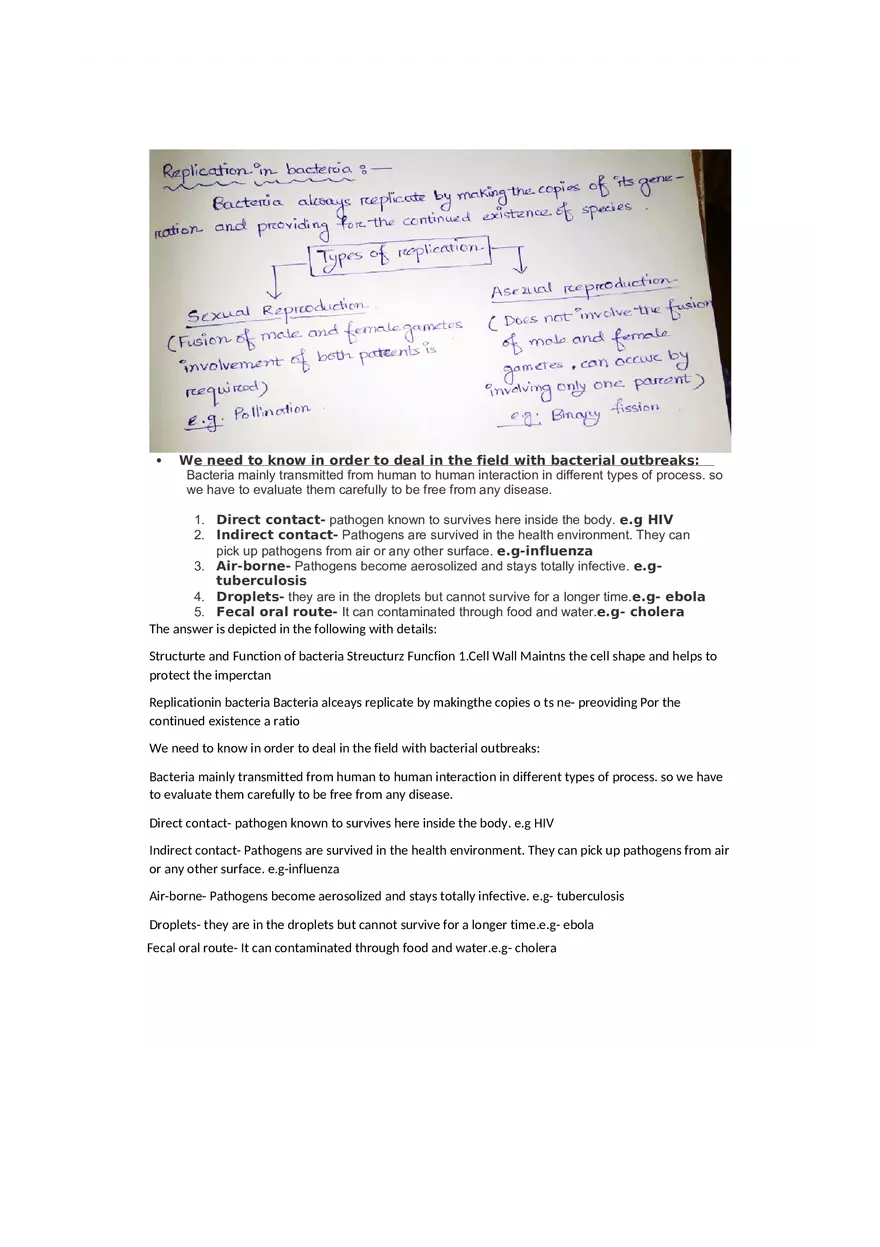 Replication in bacteria :—
Bacteria always replicate by making the copies of its gene-
ration and providing for the continued existence of species.
Types of replication
Sexual Reproduction
(Fusion of male and female gametes
involvement of both parents is
required)
e.g. Pollination
Asexual reproduction
(Does not involve the fusion
of male and female
gametes, can occur by
involving only one parent)
e.g: Binary fission
• We need to know in order to deal in the field with bacterial outbreaks:
Bacteria mainly transmitted from human to human interaction in different types of process. so
we have to evaluate them carefully to be free from any disease.
1. Direct contact- pathogen known to survives here inside the body. e.g HIV
2. Indirect contact- Pathogens are survived in the health environment. They can
pick up pathogens from air or any other surface. e.g-influenza
3. Air-borne- Pathogens become aerosolized and stays totally infective. e.g-
tuberculosis
4. Droplets- they are in the droplets but cannot survive for a longer time.e.g- ebola
5. Fecal oral route- It can contaminated through food and water.e.g- cholera
The answer is depicted in the following with details:
Structurte and Function of bacteria Streucturz Funcfion 1.Cell Wall Maintns the cell shape and helps to
protect the imperctan
Replicationin bacteria Bacteria alceays replicate by makingthe copies o ts ne- preoviding Por the
continued existence a ratio
We need to know in order to deal in the field with bacterial outbreaks:
Bacteria mainly transmitted from human to human interaction in different types of process. so we have
to evaluate them carefully to be free from any disease.
Direct contact- pathogen known to survives here inside the body. e.g HIV
Indirect contact- Pathogens are survived in the health environment. They can pick up pathogens from air
or any other surface. e.g-influenza
Air-borne- Pathogens become aerosolized and stays totally infective. e.g- tuberculosis
Droplets- they are in the droplets but cannot survive for a longer time.e.g- ebola
Fecal oral route- It can contaminated through food and water.e.g- cholera